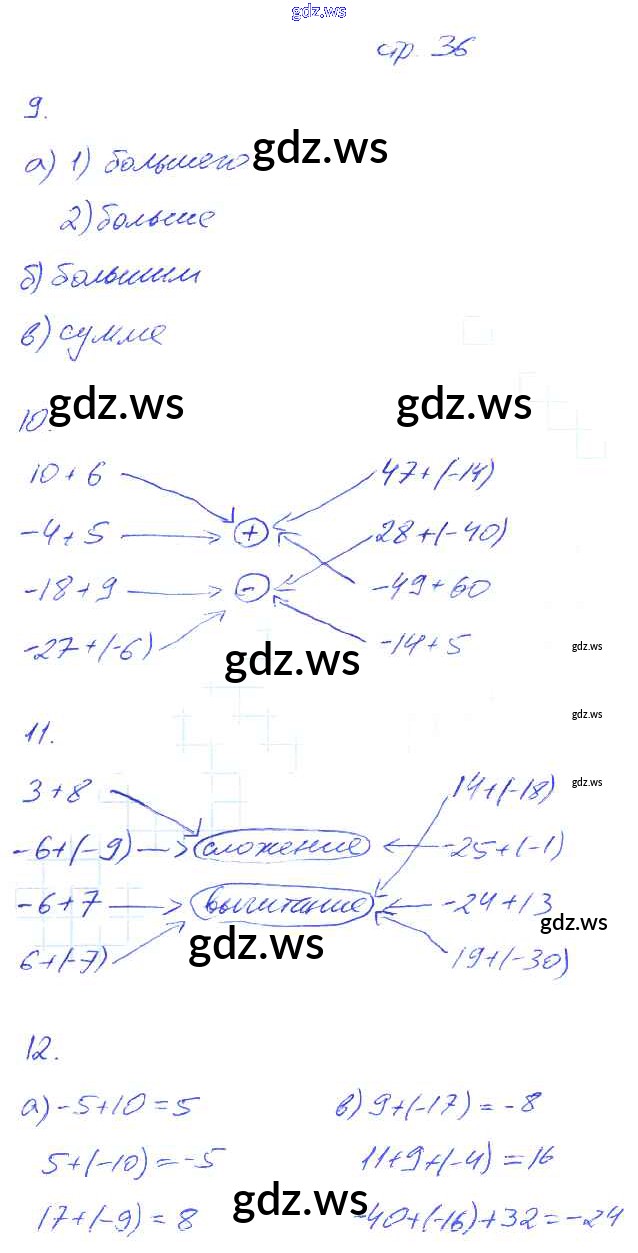 gdz.ws
стр. 36
9.
а) 1) большего
gdz.ws
2) больше
б) большим
в) сумме
gdz.ws
gdz.ws
10.
10+6
47+(-14)
-4+5
+
28+(-40)
-18+9
-
-49+60
-27+(-6)
-14+5
gdz.ws
gdz.ws
gdz.ws
11.
3+8
14+(-18)
gdz.ws
-6+(-9)
сложение
-25+(-1)
-6+7
вычитание
-24+13
gdz.ws
gdz.ws
6+(-7)
19+(-30)
12.
а) -5+10=5
в) 9+(-17)=-8
5+(-10)=-5
11+9+(-4)=16
gdz.ws
17+(-9)=8
-40+(-16)+32=-24